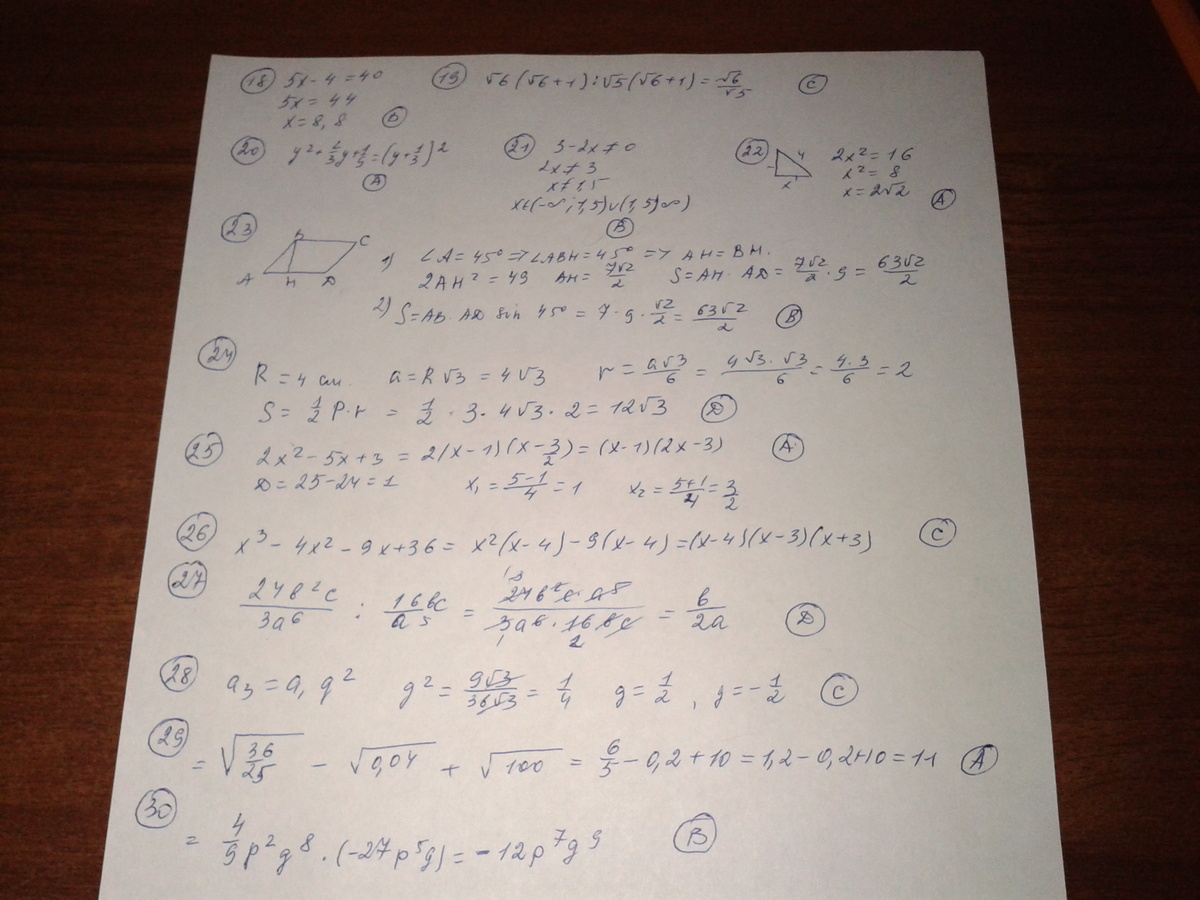 18 5x - 4 = 40 19 √6(√6+1):√5(√6+1)=√6/√5 C
5x = 44
x = 8,8 B
20 y²+2/3y+1/9=(y+1/3)² 21 3-2x≠0 22 4 2x²=16
2x≠3 x²=8
A x≠1,5 x x=2√2 A
x∈(-∞;1,5)∪(1,5;∞)
B
23 B C
A H D
1) ∠A=45°=>∠ABH=45° => AH=BH.
2AH²=49 AH=7√2/2 S=AH·AD=7√2/2·9=63√2/2
2) S=AB·AD sin 45°=7·9·√2/2=63√2/2 B
24 R=4 см. a=R√3=4√3 r=a√3/6=4√3·√3/6=4·3/6=2
S=1/2 P·r=1/2·3·4√3·2=12√3 D
25 2x²-5x+3=2(x-1)(x-3/2)=(x-1)(2x-3) A
D=25-24=1 x₁=5-1/4=1 x₂=5+1/4=3/2
26 x³-4x²-9x+36=x²(x-4)-9(x-4)=(x-4)(x-3)(x+3) C
27 24b²c/3a⁶ : 16bc/a⁵ = 24b²c·a⁵/3a⁶·16bc = b/2a D
28 a₃=a₁q² q²=9√3/36√3=1/4 q=1/2, q=-1/2 C
29 =√36/25-√0,04+√100=6/5-0,2+10=1,2-0,2+10=11 A
30 =4/9p²q⁸·(-27p⁵q)=-12p⁷q⁹ B